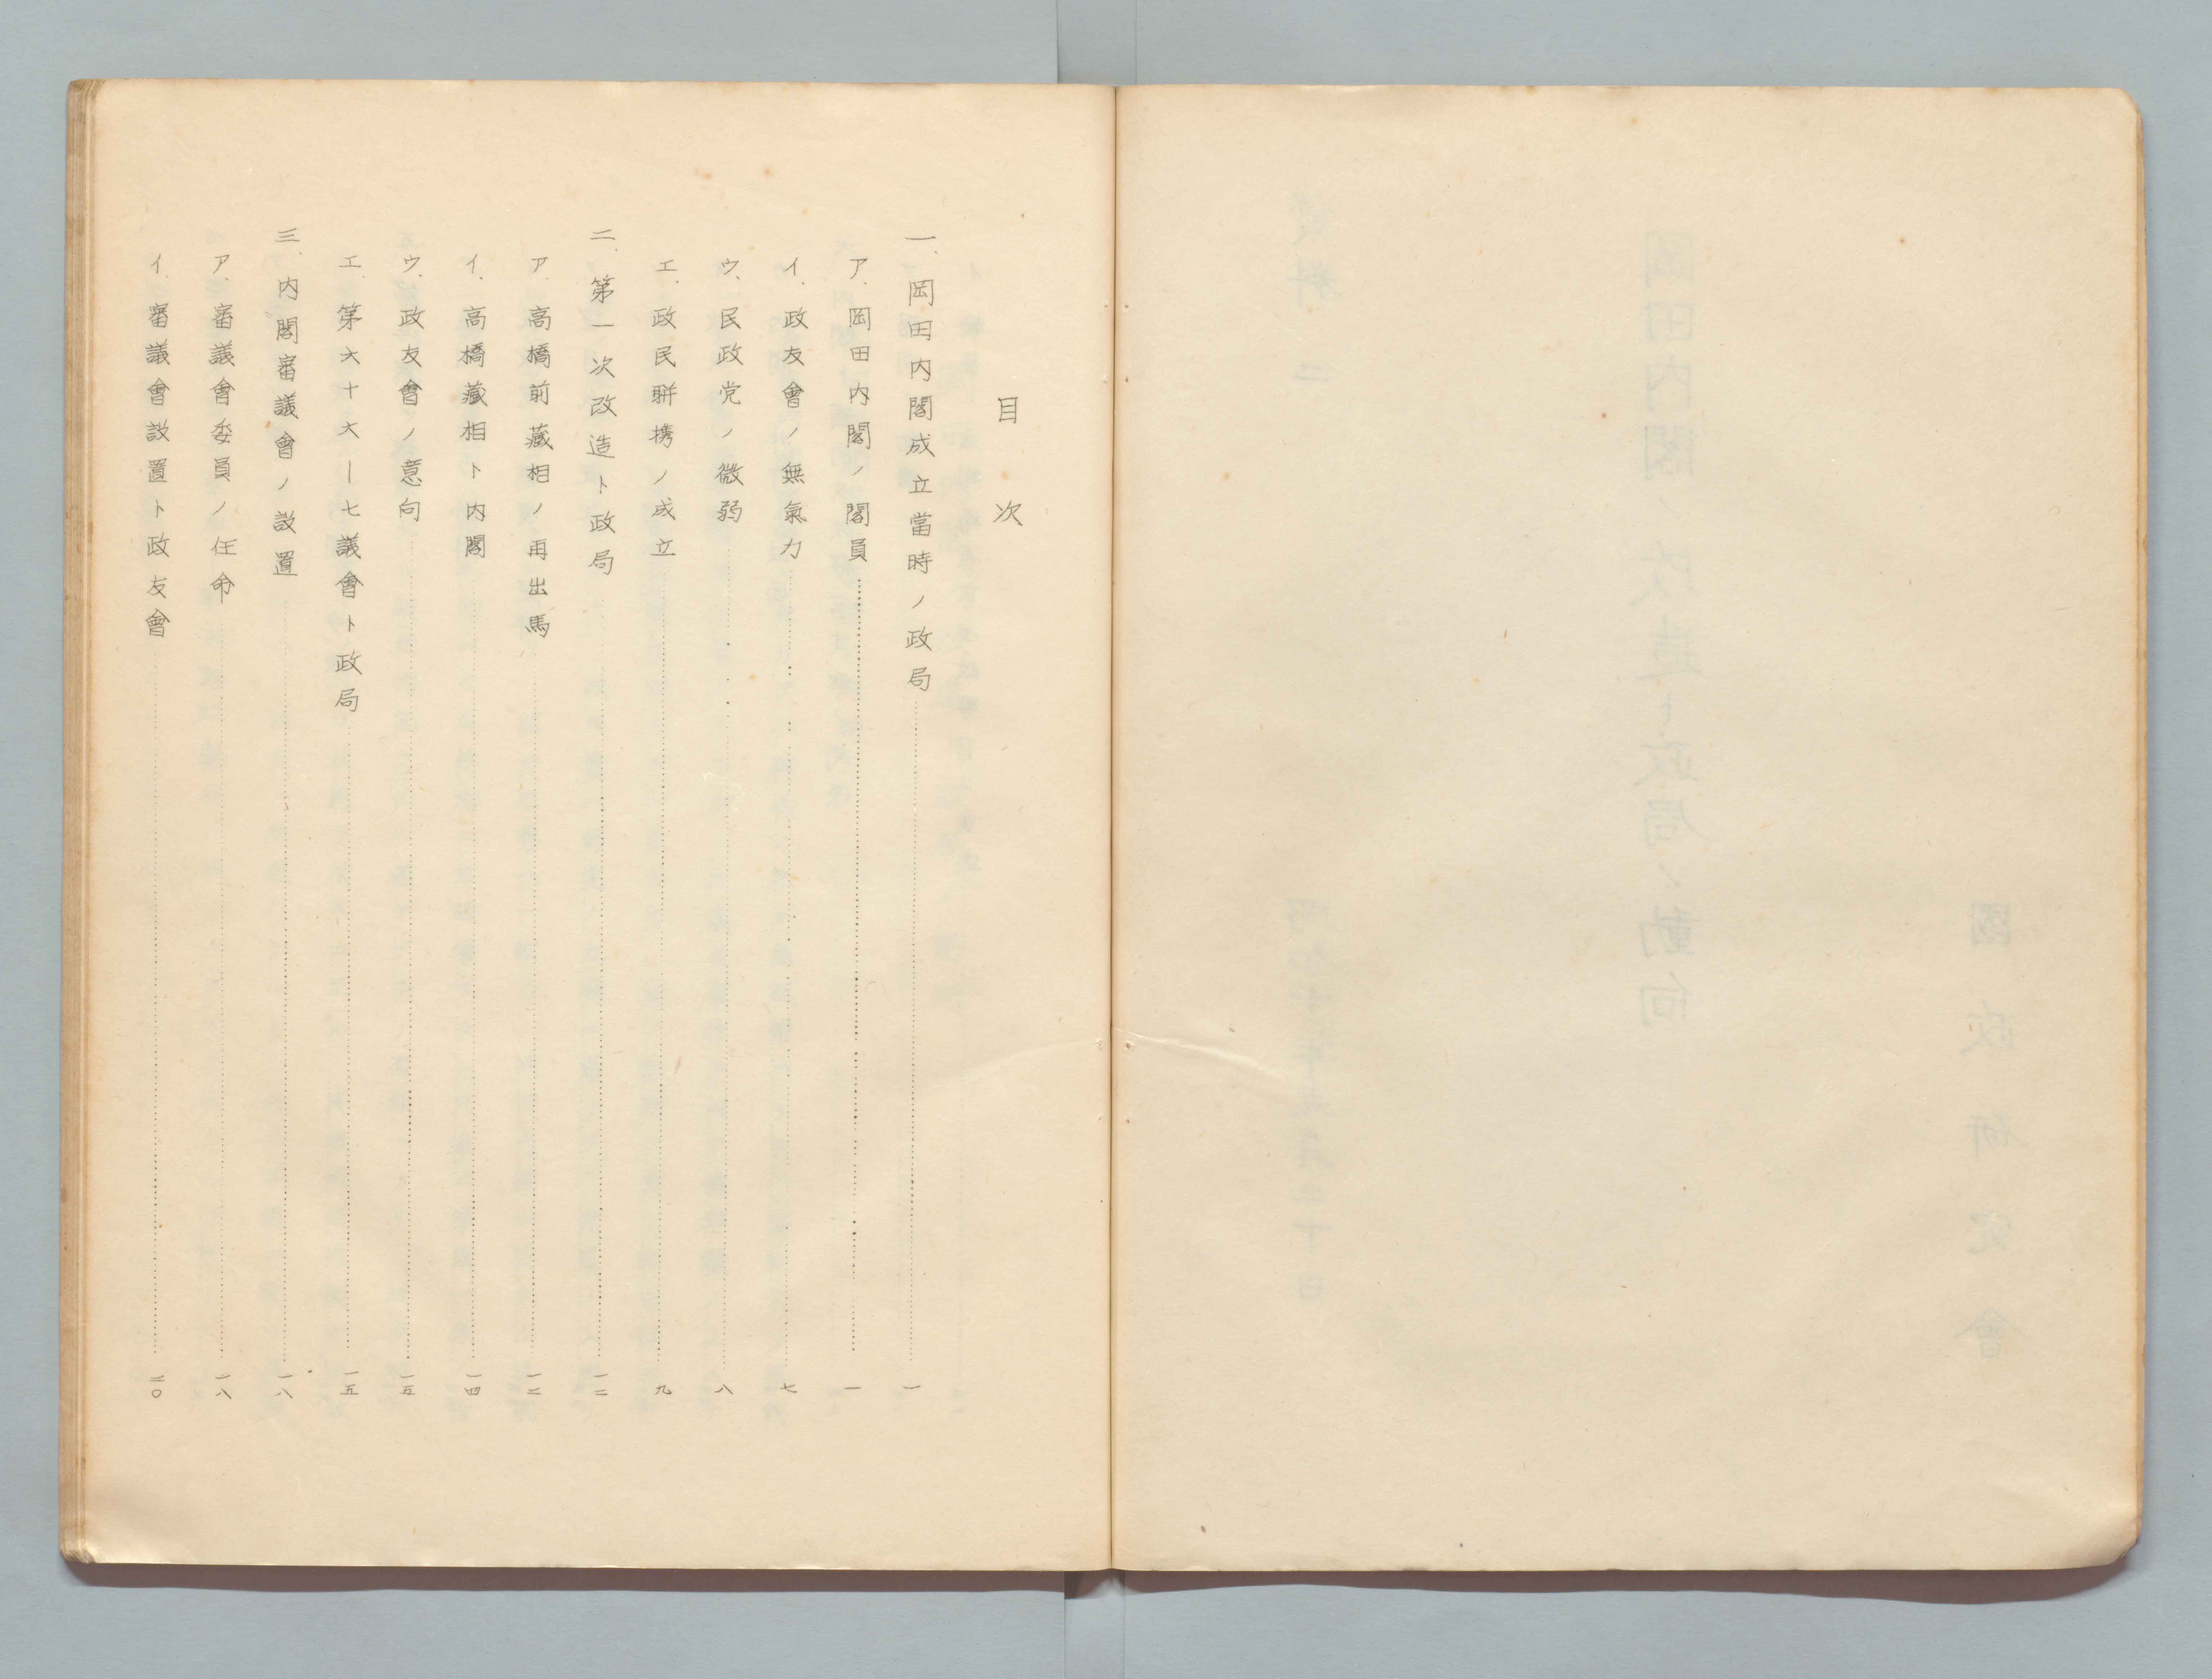 目次
一、岡田内閣成立當時ノ政局……一
ア、岡田内閣ノ閣員……一
イ、政友會ノ無氣力……七
ウ、民政党ノ微弱……八
エ、政民聯携ノ成立……九
二、第一次改造ト政局……一二
ア、高橋前藏相ノ再出馬……一二
イ、高橋藏相ト内閣……一四
ウ、政友會ノ意向……一五
エ、第六十六―七議會ト政局……一五
三、内閣審議會ノ設置……一八
ア、審議會委員ノ任命……一八
イ、審議會設置ト政友會……二〇